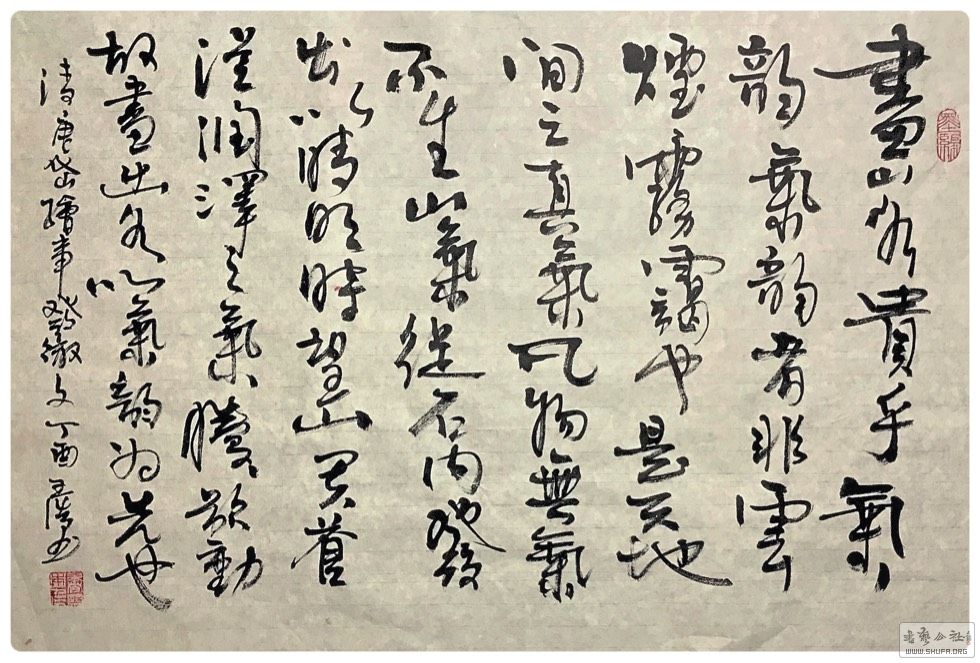 畫山水貴乎氣
韵氣韵者非雲
煙霧靄也是天地
間之真氣凡物無氣
不生山氣從石内發
出以晴明時望山其蒼
茫潤澤之氣騰騰欲動
故畫山水以氣韵為先也
清唐岱繪事發微文丁酉
书艺公社
WWW.SHUFA.ORG